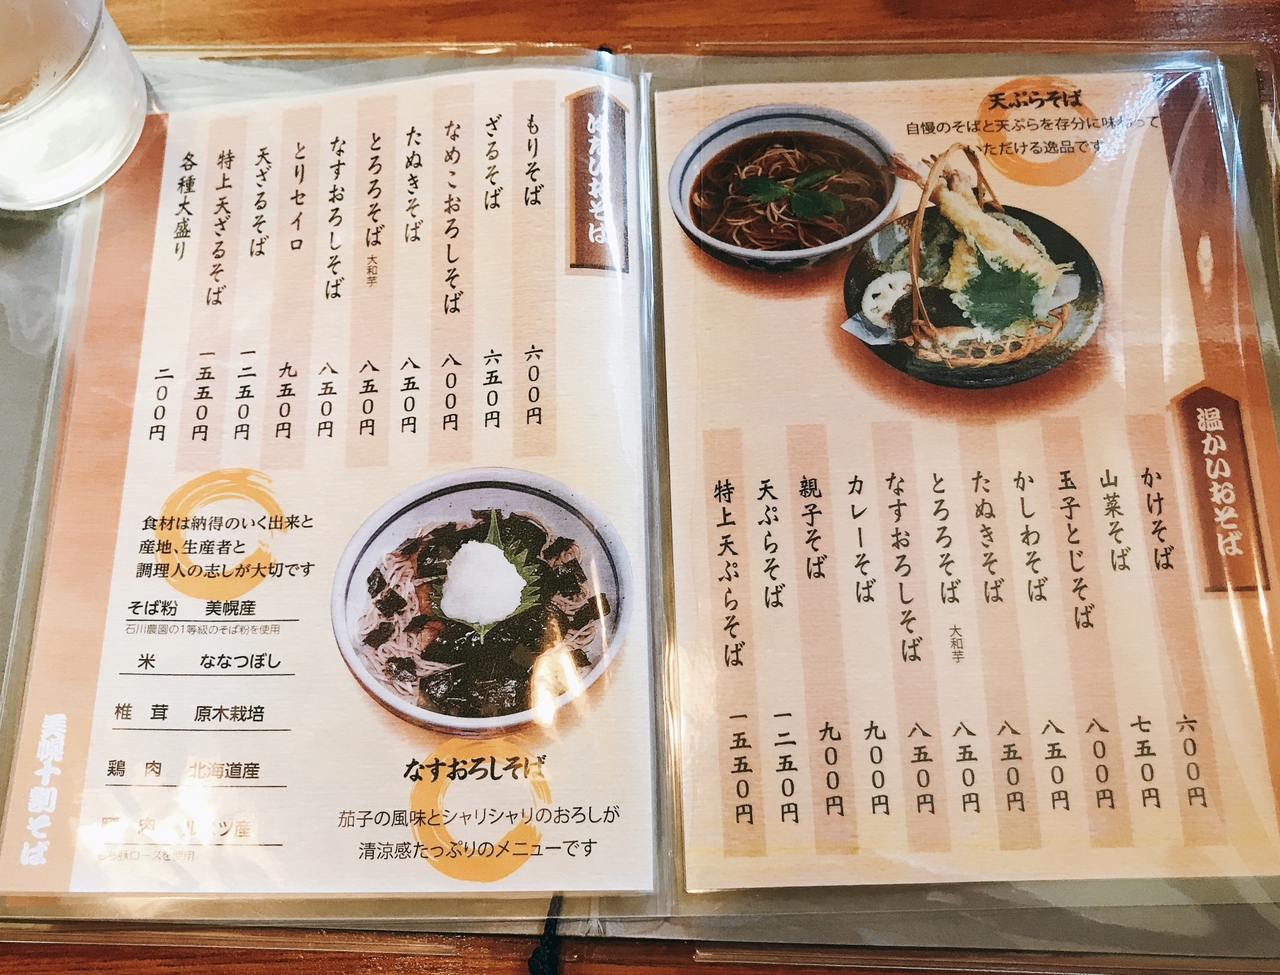 天ぷらそば
自慢のそばと天ぷらを存分に味わって
いただける逸品です
温かいおそば
かけそば 六００円
山菜そば 七五０円
玉子とじそば 八００円
かしわそば 八五０円
たぬきそば 八五０円
とろろそば 大和芋 八五０円
なすおろしそば 八五０円
カレーそば 九００円
親子そば 九００円
天ぷらそば 一二五０円
特上天ぷらそば 一五五０円
おそば
もりそば 六００円
ざるそば 六五０円
なめこおろしそば 八００円
たぬきそば 八五０円
とろろそば 大和芋 八五０円
なすおろしそば 八五０円
とりセイロ 九五０円
天ざるそば 一二五０円
特上天ざるそば 一五五０円
各種大盛り 二００円
食材は納得のいく出来と
産地、生産者と
調理人の志しが大切です
そば粉 美幌産
石川農園の1等級のそば粉を使用
米 ななつぼし
椎茸 原木栽培
鶏肉 北海道産
肉 ツ産
ロースを使用
なすおろしそば
茄子の風味とシャリシャリのおろしが
清涼感たっぷりのメニューです
美幌十割そば